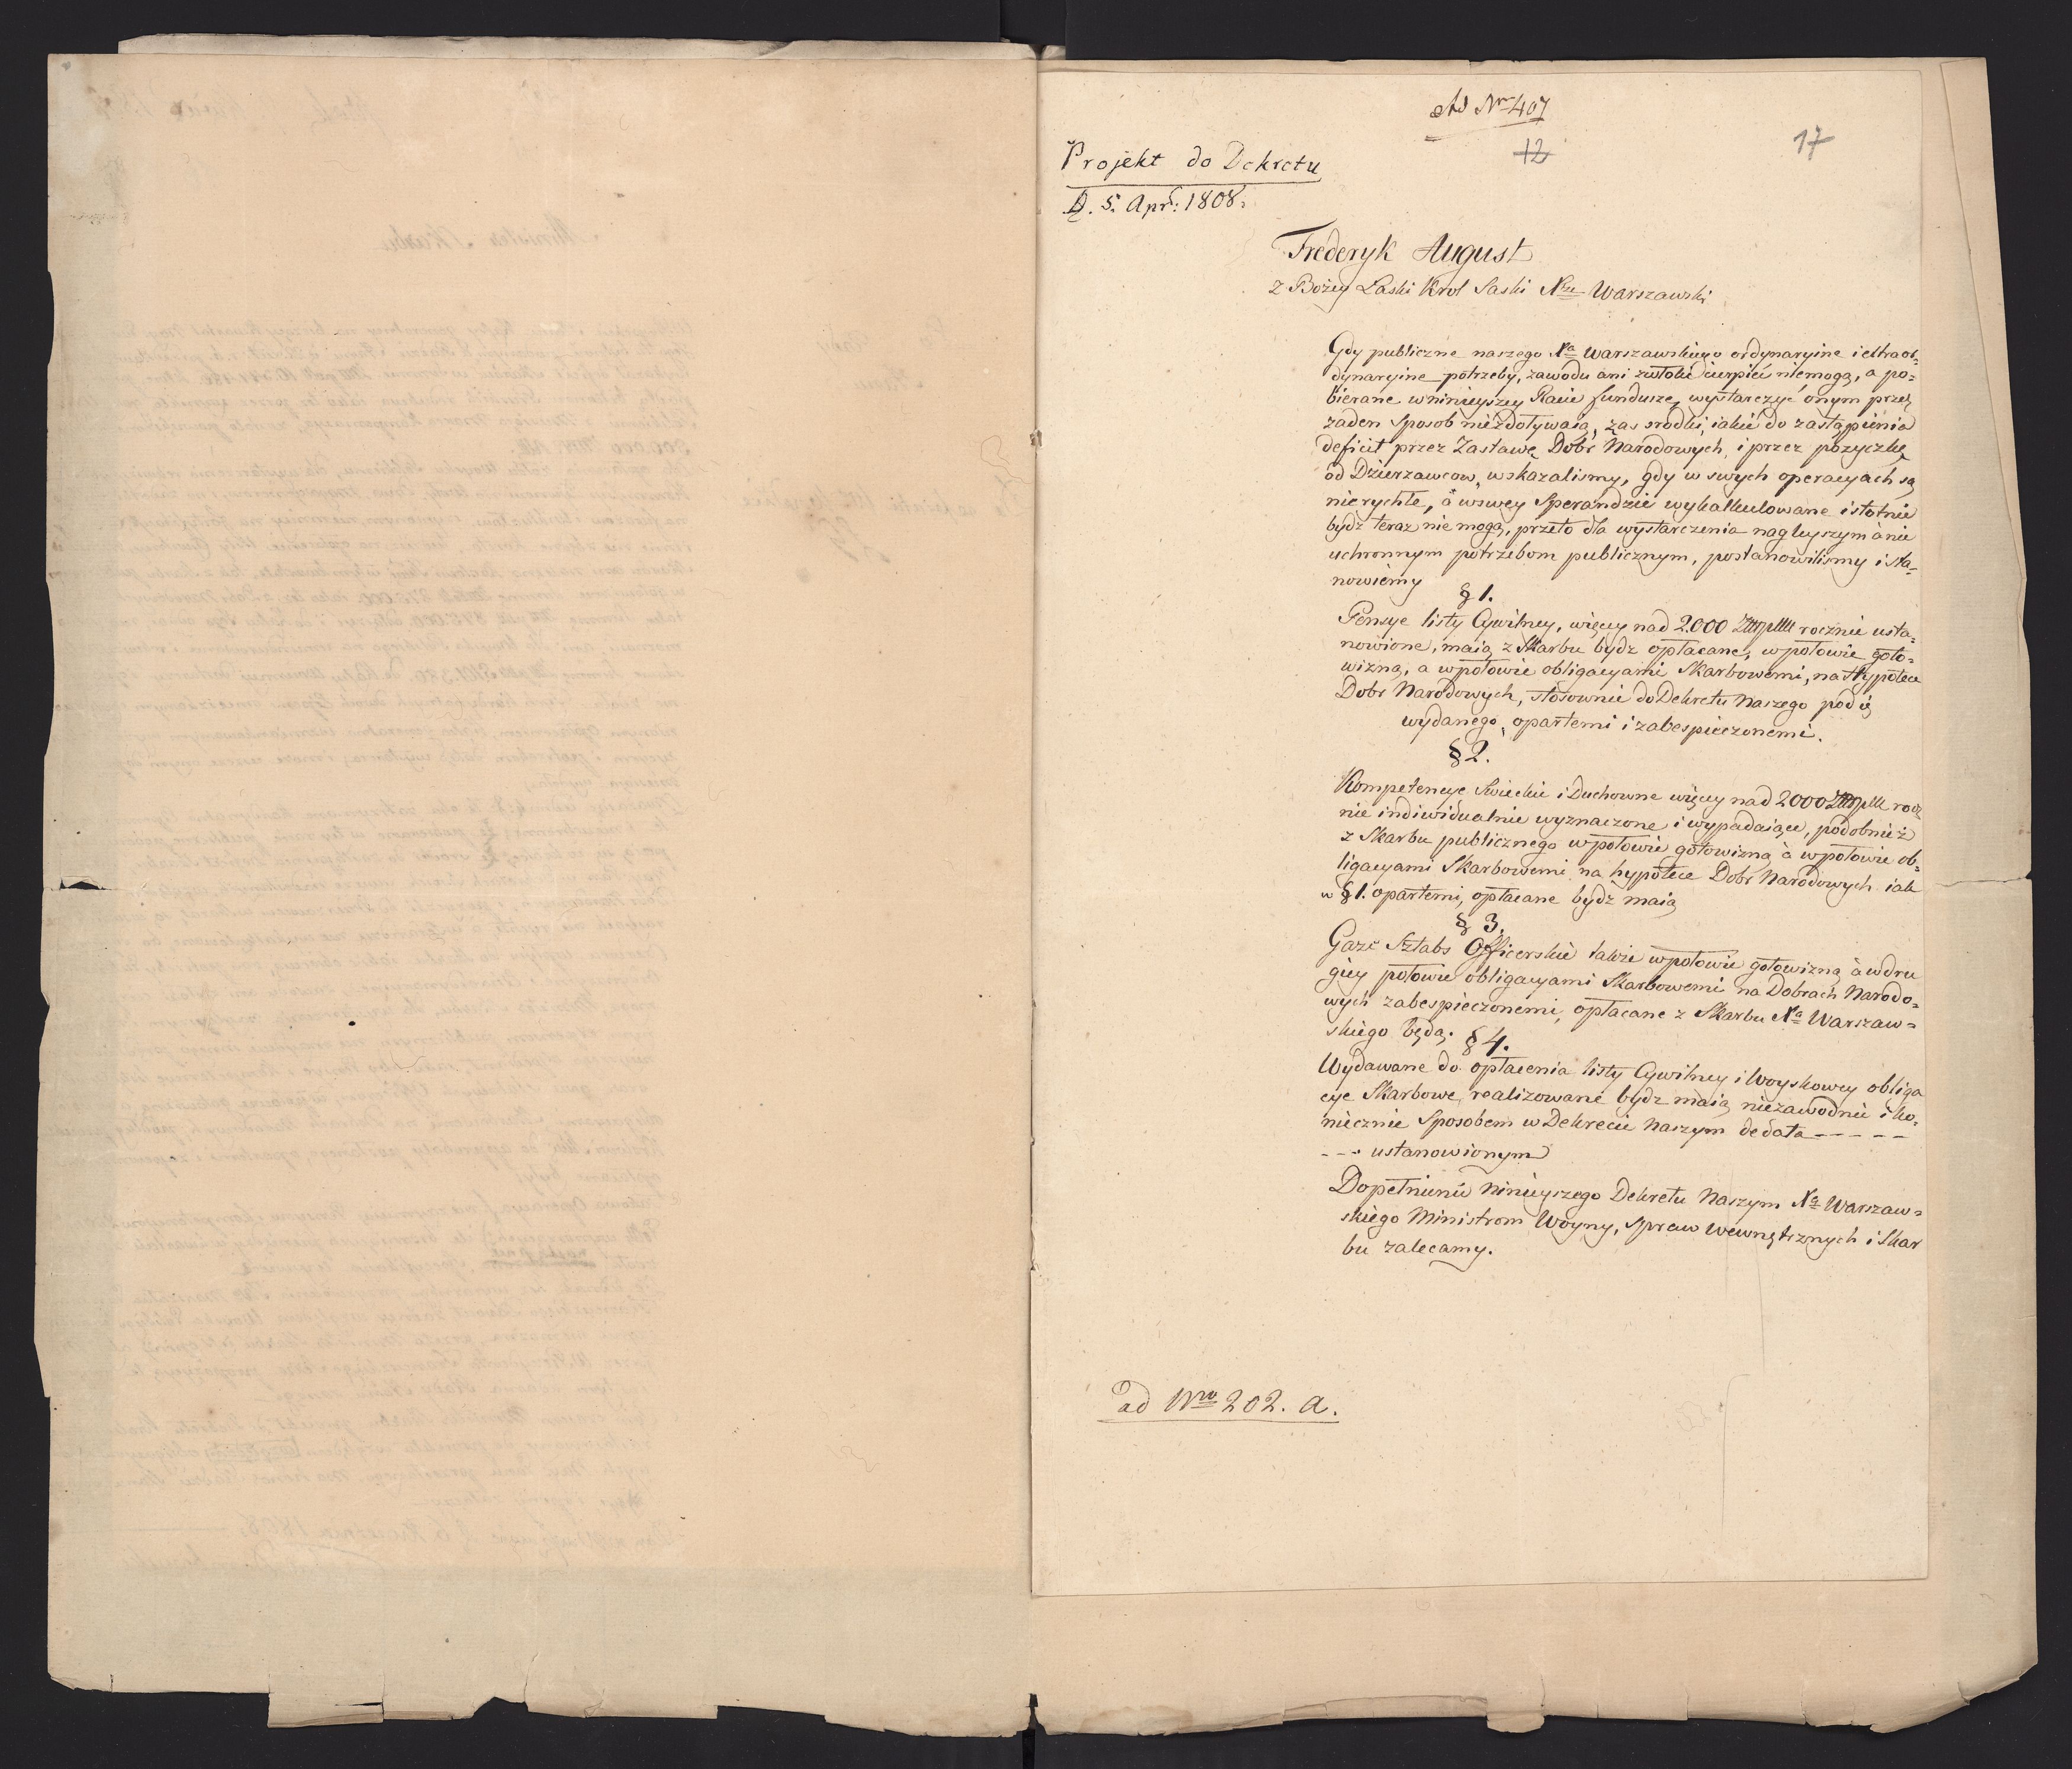 Ad Nro 407
12
17
Projekt do Dekretu
D. 5. Apr: 1808.
Frederyk August
z Bożey Łaski Krol Saski Xże Warszawski
Gdy publiczne naszego Xa Warszawskiego ordynaryine i extraor=
dynaryine potrzeby, zawodu ani zwłoki cierpieć niemogą, a po=
bierane w ninieyszey Racie fundusze, wystarczyć onym przez
żaden Sposob niezdoływaią, zas srodki, iakie do zastąpienia
deficit przez Zastawę Dobr Narodowych, i przez pożyczkę
od Dzierzawcow, wskazalismy, gdy w swych operacyach są
nierychłe, a w swey Sperandzie wykalkulowane istotnie
bydz teraz nie mogą, przeto dla wystarczenia nagleyszym a nie
uchronnym potrzebom publicznym, postanowilismy i sta=
nowiemy
§ 1.
Pensye listy Cywilney, więcey nad 2.000 Złłpllll rocznie usta=
nowione, maią z Skarbu bydz opłacane, w połowie goto=
wizną, a w połowie obligacyami Skarbowemi, na Hypotece
Dobr Narodowych, stosownie do Dekretu Naszego pod
wydanego, opartemi i zabespieczonemi.
§ 2.
Kompetencye Swieckie i Duchowne więcey nad 2000 Złłplll rocz
nie indiwidualnie wyznaczone i wypadaiące, podobnież
z Skarbu publicznego w połowie gotowizną a w połowie ob=
ligacyami Skarbowemi na hypotece Dobr Narodowych iak
w § 1. opartemi, opłacane bydź maią
§ 3.
Gaże Sztabs Officerskie także w połowie gotowizną a w dru
giey połowie obligacyami Skarbowemi na Dobrach Narodo=
wych zabespieczonemi, opłacane z Skarbu Xa Warszaw=
skiego będą. § 4.
Wydawane do opłacenia listy Cywilney i Woyskowey obliga
cye Skarbowe, realizowane bydz maią niezawodnie i ko=
niecznie Sposobem w Dekrecie Naszym de dato - - - - -
- - - ustanowionym
Dopełnienie ninieyszego Dekretu Naszym Xa Warszaw=
skiego Ministrom Woyny, Spraw Wewnętrznych i Skar
bu zalecamy.
ad Nro 202. a.